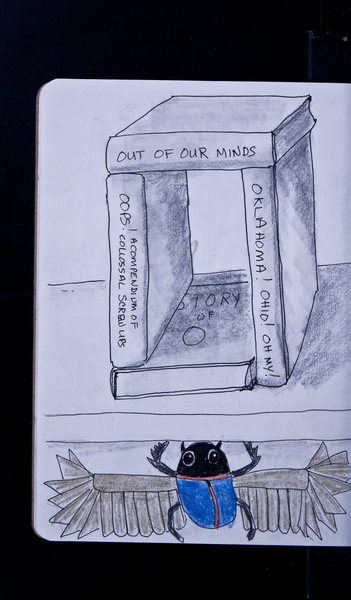 OUT OF OUR MINDS
OOPS! A COMPENDIUM OF
COLLOSSAL SCREW UPS
OKLAHOMA! OHIO! OH MY!
STORY
OF
O